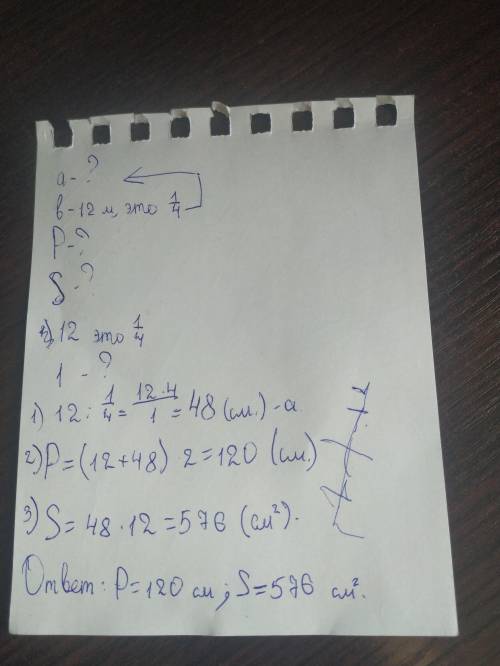 а - ?
в - 12 м, это 1/4
P - ?
S - ?
12 это 1/4
1 - ?
1) 12 : 1/4 = 12·4/1 = 48 (см.) - а.
2) P = (12+48) · 2 = 120 (см.)
3) S = 48 · 12 = 576 (см²).
Ответ: P = 120 см; S = 576 см².